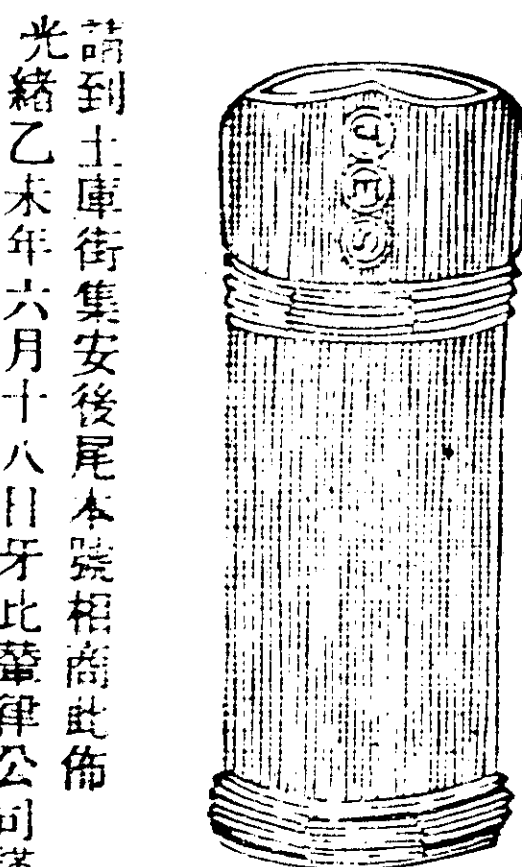 請到土庫街集安後尾本號相商此佈
光緒乙未年六月十八日牙此華律公司謹
JES